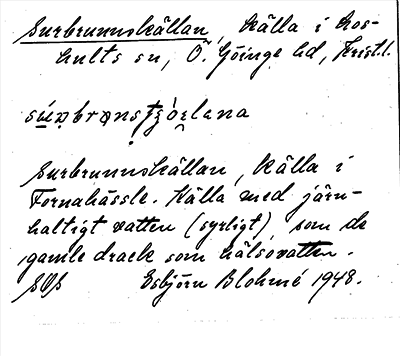 Surbrunnskällan, källa i Hos-
hults sn, Ö. Göinge hd, Krist.l.
Surbrunnskällan, källa i
Tornahässle. Källa med järn-
haltigt vatten (syrligt), som de
gamle drack som hälsovatten.
Esbjörn Blohmé 1948.